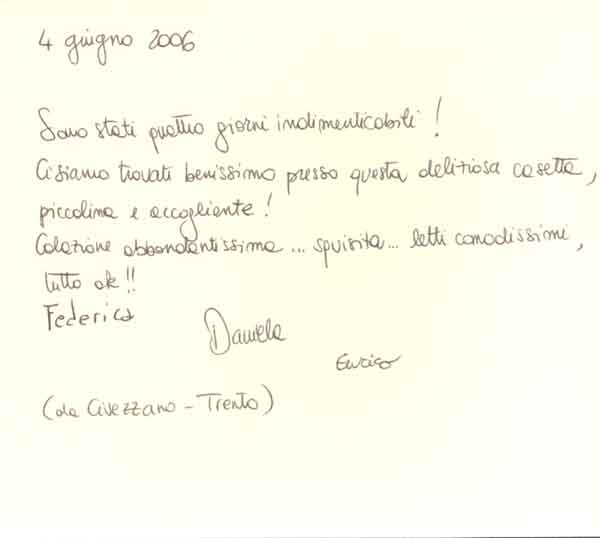 4 giugno 2006
Sono stati quattro giorni indimenticabili!
Ci siamo trovati benissimo presso questa deliziosa casetta,
piccolina e accogliente!
Colazione abbondantissima... squisita... letti comodissimi,
tutto ok!!
Federica
Daniela
Enrico
(da Civezzano - Trento)